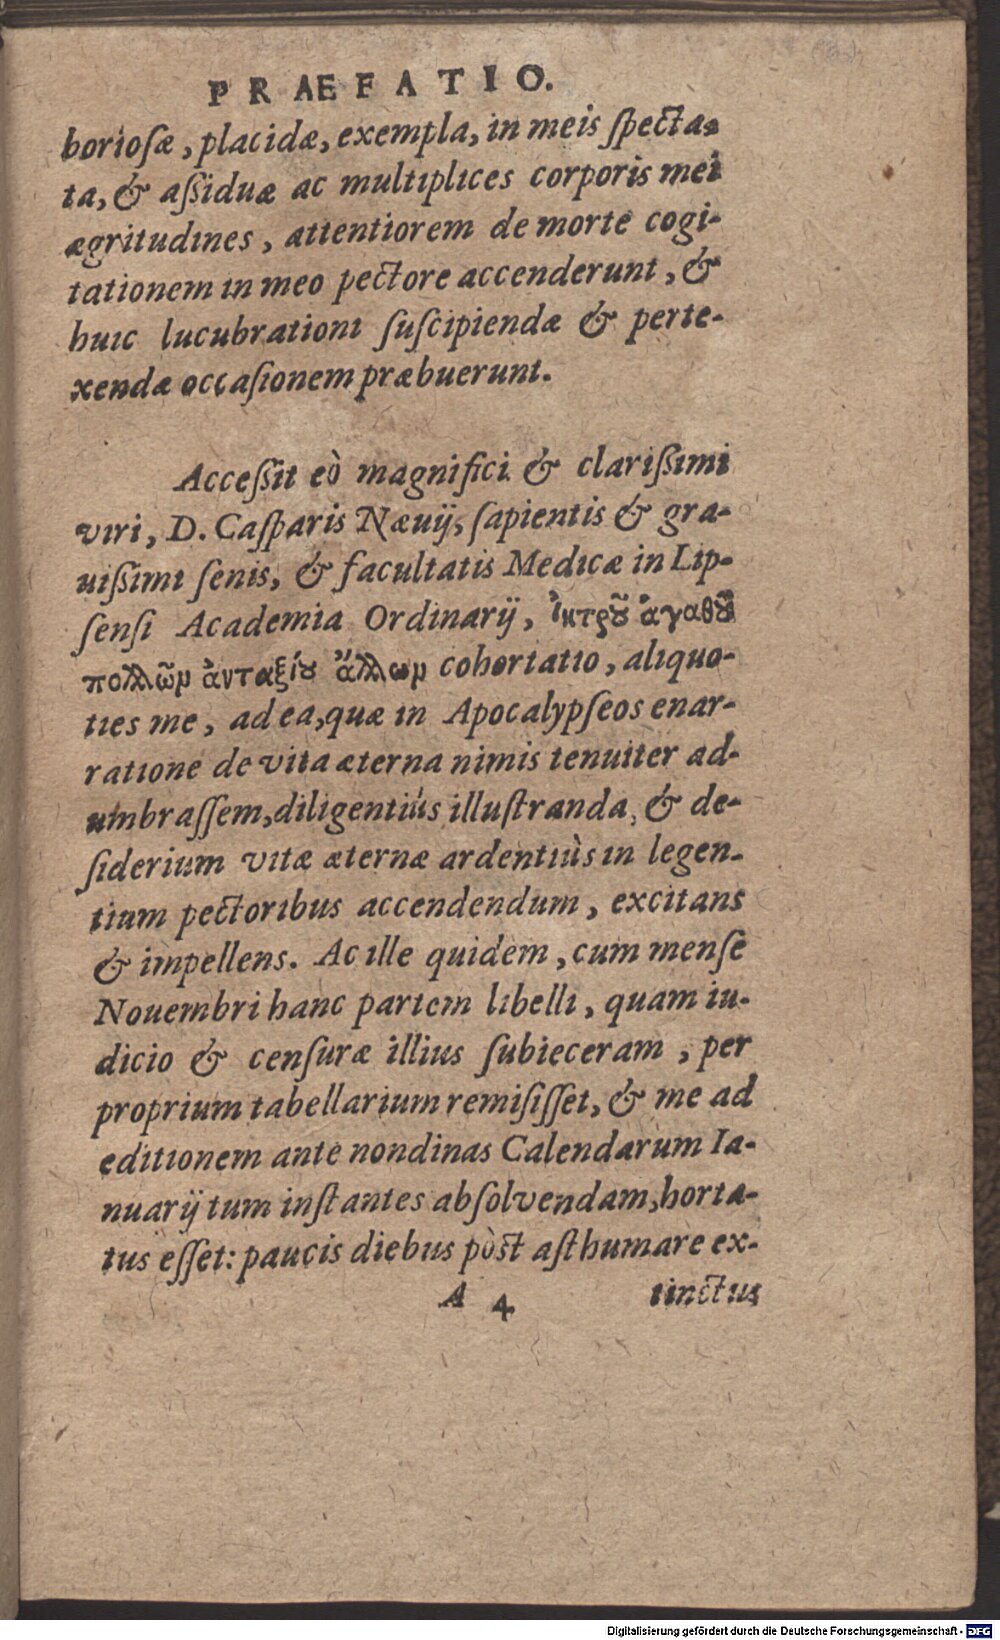 PRÆFATIO.
boriosæ, placidæ, exempla, in meis specta-
ta, & assiduæ ac multiplices corporis mei
ægritudines, attentiorem de morte cogi-
tationem in meo pectore accenderunt, &
huic lucubrationi suscipiendæ & perte-
xendæ occasionem præbuerunt.
Accessit eò magnifici & clarissimi
viri, D. Casparis Næuij, sapientis & gra-
uissimi senis, & facultatis Medicæ in Lip-
sensi Academia Ordinarij, ἰητροῦ ἀγαθοῦ
πολλῶμ ἀνταξίου ἄλλωμ cohortatio, aliquo-
ties me, ad ea, quæ in Apocalypseos enar-
ratione de vita æterna nimis tenuiter ad-
umbrassem, diligentiùs illustranda, & de-
siderium vitæ æternæ ardentiùs in legen-
tium pectoribus accendendum, excitans
& impellens. Ac ille quidem, cum mense
Nouembri hanc partem libelli, quam iu-
dicio & censuræ illius subieceram, per
proprium tabellarium remisisset, & me ad
editionem ante nondinas Calendarum Ia-
nuarij tum instantes absolvendam, horta-
tus esset: paucis diebus pòst asthumare ex-
A 4 tinctus
Digitalisierung gefördert durch die Deutsche Forschungsgemeinschaft - DFG